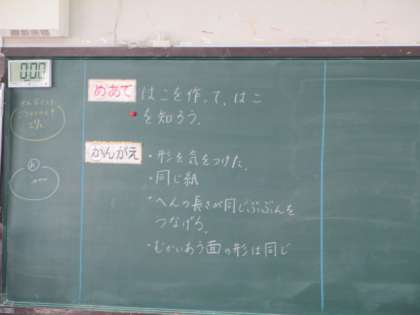 0:00
めあて はこを作って、はこ
を知ろう。
かんがえ ・形を気をつけた。
・同じ紙
・へんの長さが同じぶぶんを
つなげる。
・むかいあう面の形は同じ